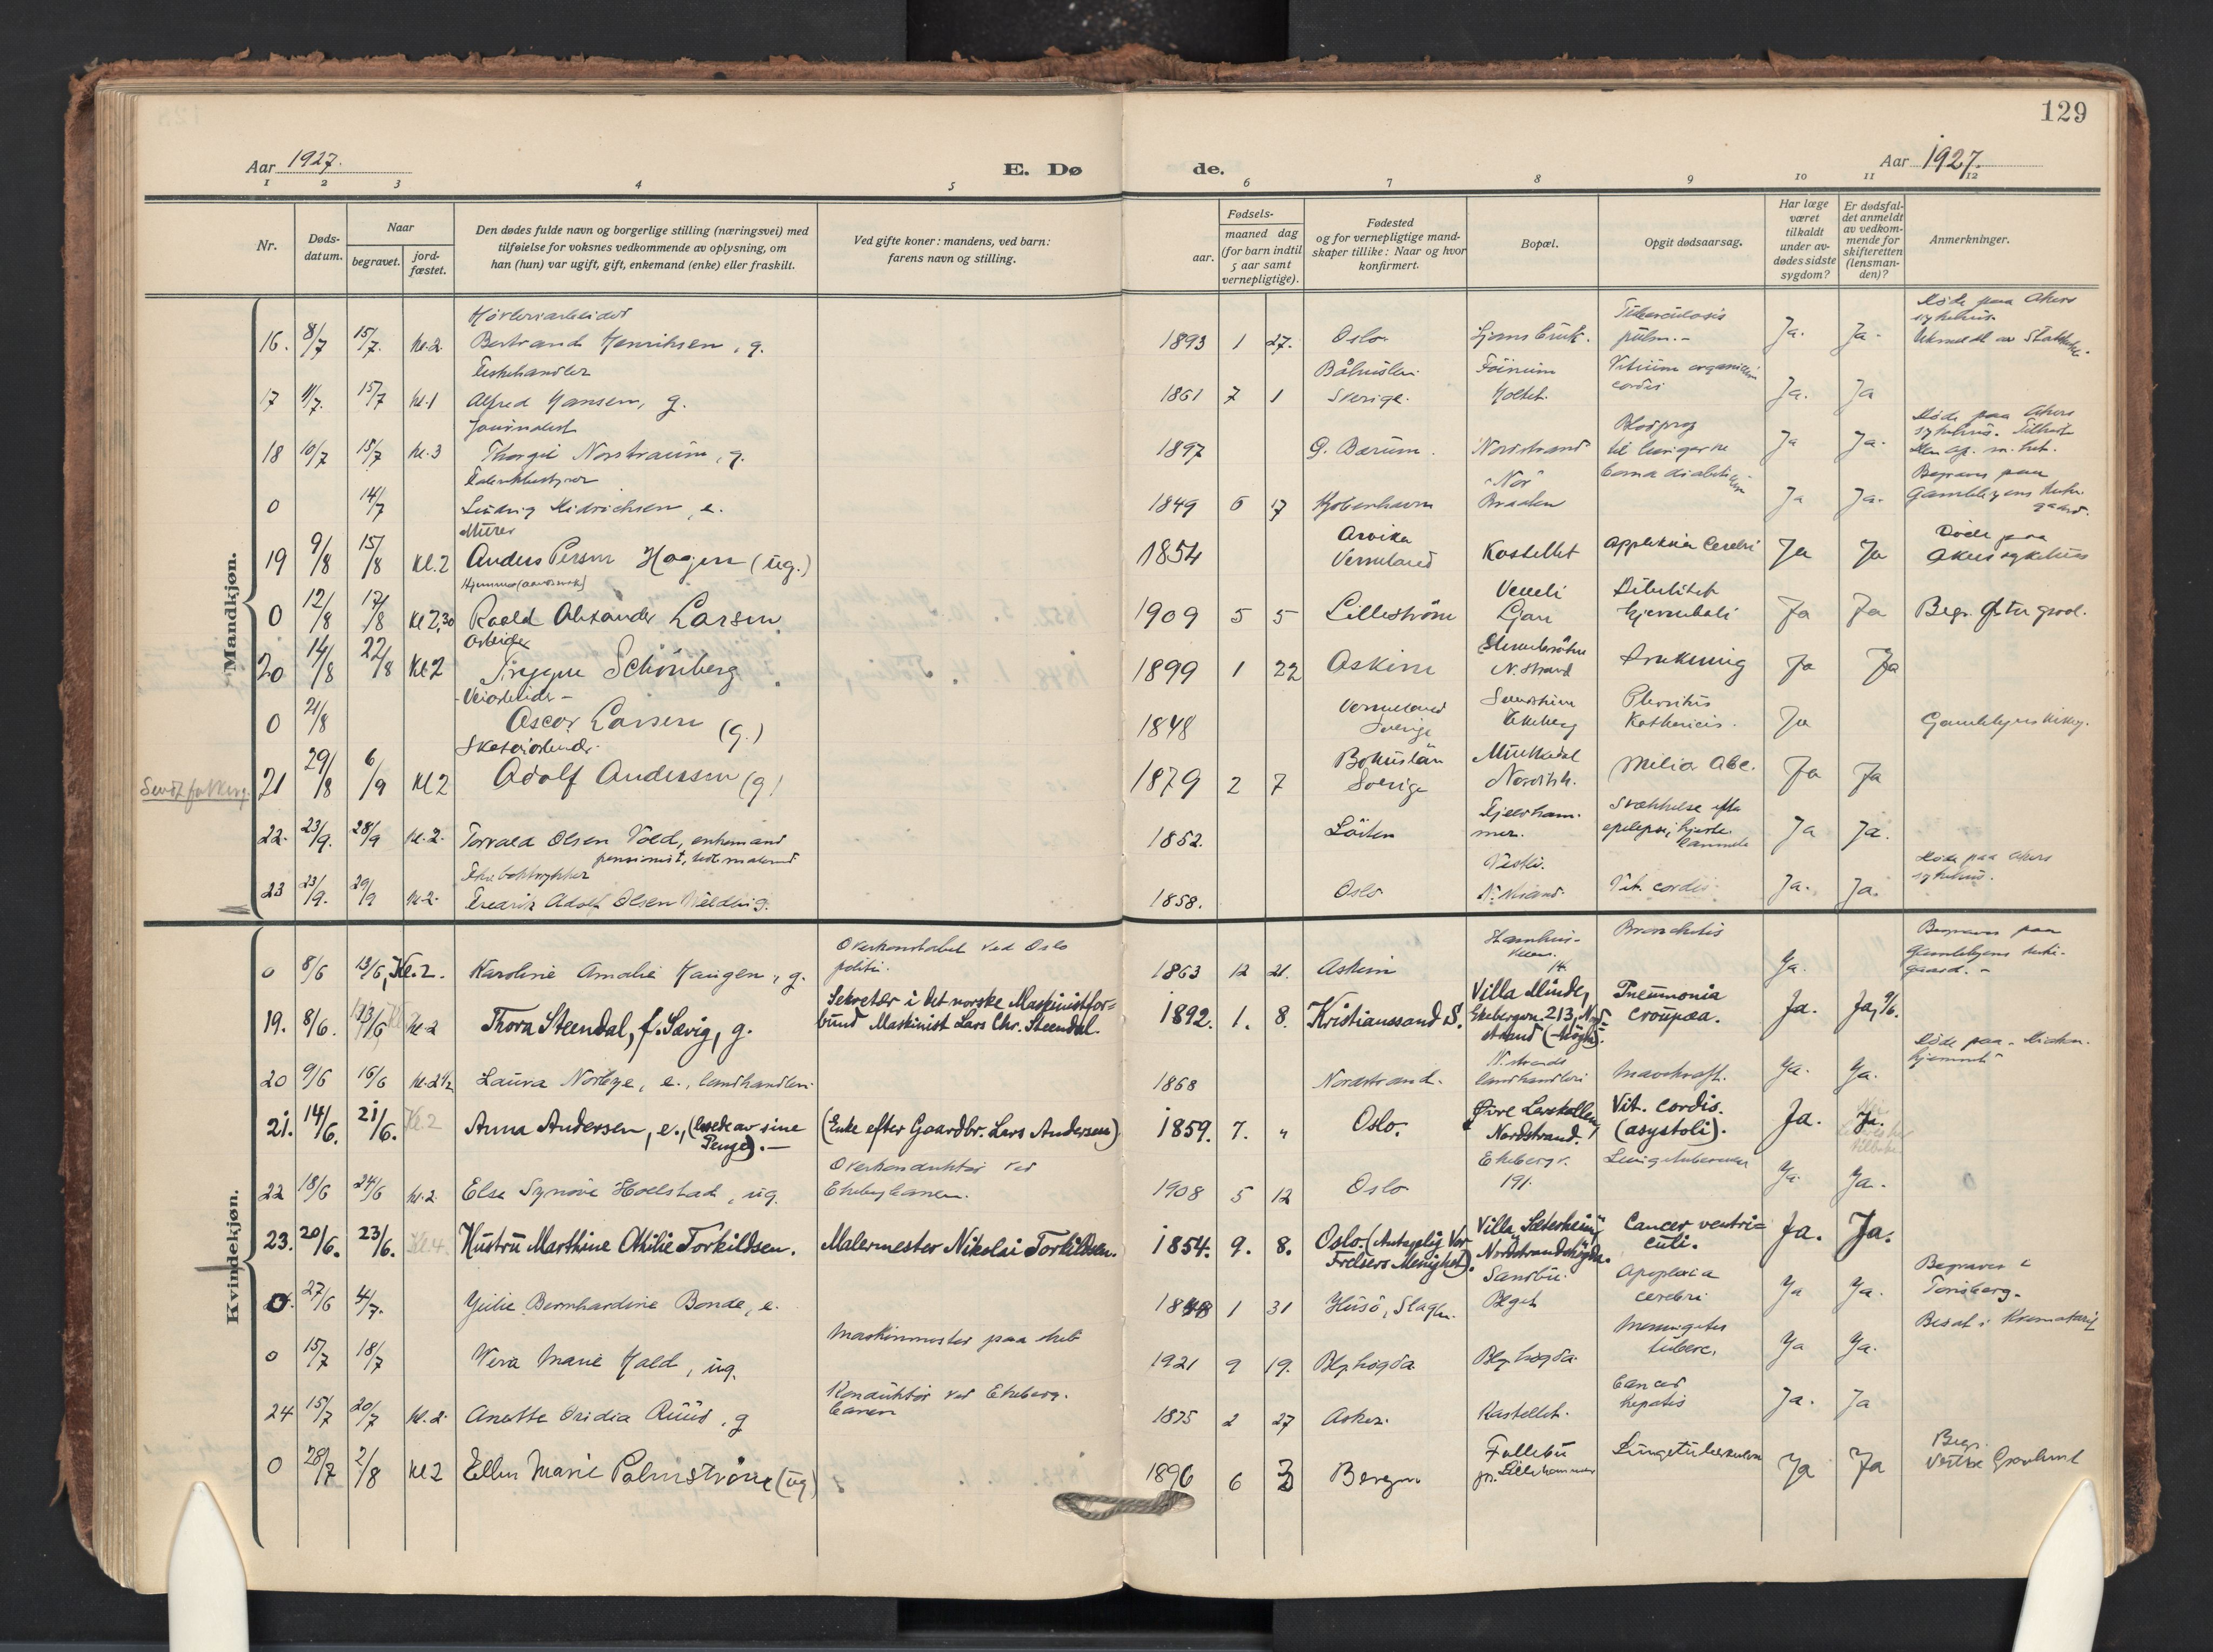 129
Aar 1927.
E. Dø
de.
Aar 1927.
1 2 3 4 5 6 7 8 9 10 11 12
Nr.
Døds-
datum.
Naar
begravet.
jord-
fæstet.
Den dødes fulde navn og borgerlige stilling (næringsvei) med
tilføielse for voksnes vedkommende av oplysning, om
han (hun) var ugift, gift, enkemand (enke) eller fraskilt.
Ved gifte koner: mandens, ved barn:
farens navn og stilling.
Fødsels-
aar.
maaned dag
(for barn indtil
5 aar samt
vernepligtige).
Fødested
og for vernepligtige mand-
skaper tillike: Naar og hvor
konfirmert.
Bopæl.
Opgit dødsaarsag.
Har læge
været
tilkaldt
under av-
dødes sidste
sygdom?
Er dødsfal-
det anmeldt
av vedkom-
mende for
skifteretten
(lensman-
den)?
Anmerkninger.
Mandkjøn.
Tuberculosis Døde paa Akers
sykehus.
16. 8/7 15/7. kl. 2. Bertrand Henriksen, g. 1893 1 27. Oslo. Ljans bruk. pulm. - Ja. Ja.
Fiskehandler Vitium
17 11/7. 15/7 kl. 1 Alfred Hansen, g. 1861 7 1 Sverige. Holtet. cordis Ja. Ja
Journalist Blodprop Døde paa Akers
sykehus.
18 10/7 15/7 kl. 3 Thorgil Norstraum, g. 1897 Ø. Bærum. Nordstrand til lungerne Ja Ja.
Coma Begraves paa
0 14/7 Ludvig Didrichsen, e. 1849 6 17 Kjøbenhavn Braaten Ja Ja. Gamlebyens kirke-
gaard.
Murer Arvika Døde paa
19 9/8 15/8 Kl. 2 Anders Person Hagen (ug.) 1854 Vermeland Kastellet Applexia Cerebri Ja Ja Akers sykehus
0 12/8 17/8 Kl 2,30 Roald Alexander Larsen 1909 5 5 Lillestrøm Ljan Ja Ja Begr. Østre gravl.
20 14/8 22/8 Kl 2 Trygve Schönberg 1899 1 22 Askim N. Strand Drukning Ja Ja
- Veiarbeider - Vermeland
0 21/8 Oscar Larsen (g.) 1848 Sverige Ekeberg Ja
Skotøiarbeider. Bohuslän
Sendt folkereg. 21 29/8 6/9 Kl 2 Adolf Andersson (g) 1879 2 7 Sverige Nordstr. Ja Ja
Fjeldham- Svækkelse efter
22. 23/9. 28/9 kl. 2. Torvald Olsen Vold, enkemand 1852. Löiten mer. epilepsi, hjerte- Ja Ja.
pensionist,
Døde paa Akers
sykehus.
23 23/9. 29/9 kl. 2. Fredrik Adolf Olsen g. 1858. Oslo N. Strand Vit. cordis. Ja. Ja.
Kvindekjøn.
Overkonstabel ved Oslo Bronchitis Begraves paa
0 8/6 13/6, Kl. 2. Karoline Amalie Haugen, g. politi. 1863 12 21. Askim 14 Ja. Gamlebyens kirke-
gaard. -
Sekretær i det norske Maskinistfor= Villa Minde, Pneumonia
19. 8/6. 13/6 kl. 2 Thora Steendal, f. Sævig, g. bund Maskinist Lars Chr. Steendal. 1892. 1. 8. Kristianssand S. Ekebergvn. 213, Nord- croupøa. Ja. Ja, 9/6.
strand (-høgda).
N. strands Døde paa - Diakon.
hjemmet
20 9/6 16/6 kl. 2½ Laura Norbye, e., landhandleri 1868 Nordstrand. landhandleri Ja. Ja.
Øvre Lerskallen, Vit. cordis.
21. 14/6. 21/6. Kl. 2 Anna Andersen, e., (levede av sine (Enke efter Gaardbr. Lars Andersen) 1859. 7. " Oslo. Nordstrand. (asystoli). Ja. Ja.
Penge). -
Overkonduktør ved Ekebergv. Lungetuberculose
22 18/6 24/6 kl. 2. Else Synøve Hoelstad, ug. Ekebergbanen. 1908 5 12 Oslo 191. Ja. Ja.
Villa Sæterheim, Cancer ventri=
23. 20/6. 23/6. Kl. 4. Hustru Marthine Othilie Torkildsen. Malermester Nikolai Torkildsen. 1854. 9. 8. Oslo. (Antagelig Vor Nordstrandshøgda. culi. Ja. Ja.
Frelsers Menighet).
Apoplexia Begraves i
0. 27/6 4/7. Julie Bernhardine Bonde, e. 1848 1 31 Husö, Slagen. cerebri Ja Ja. Tønsberg.
Maskinmester paa Meningitis
0 15/7 18/7 Vera Marie Hald, ug. 1921 9 19. Blylagda tuberc. Ja Ja.
Konduktør ved Ekeberg- Cancer
24 15/7 20/7 kl. 2. Anette Ovidia Ruud, g banen 1875 2 27 Asker. Kastellet. hepatis Ja. Ja
Follebu Begr.
0 28/7 2/8 Kl 2 Ellen Marie Palmstrøm (ug) 1896 6 3 Bergen pr. Lillehammer Lungetuberkulose Ja Ja Vestre Gravlund